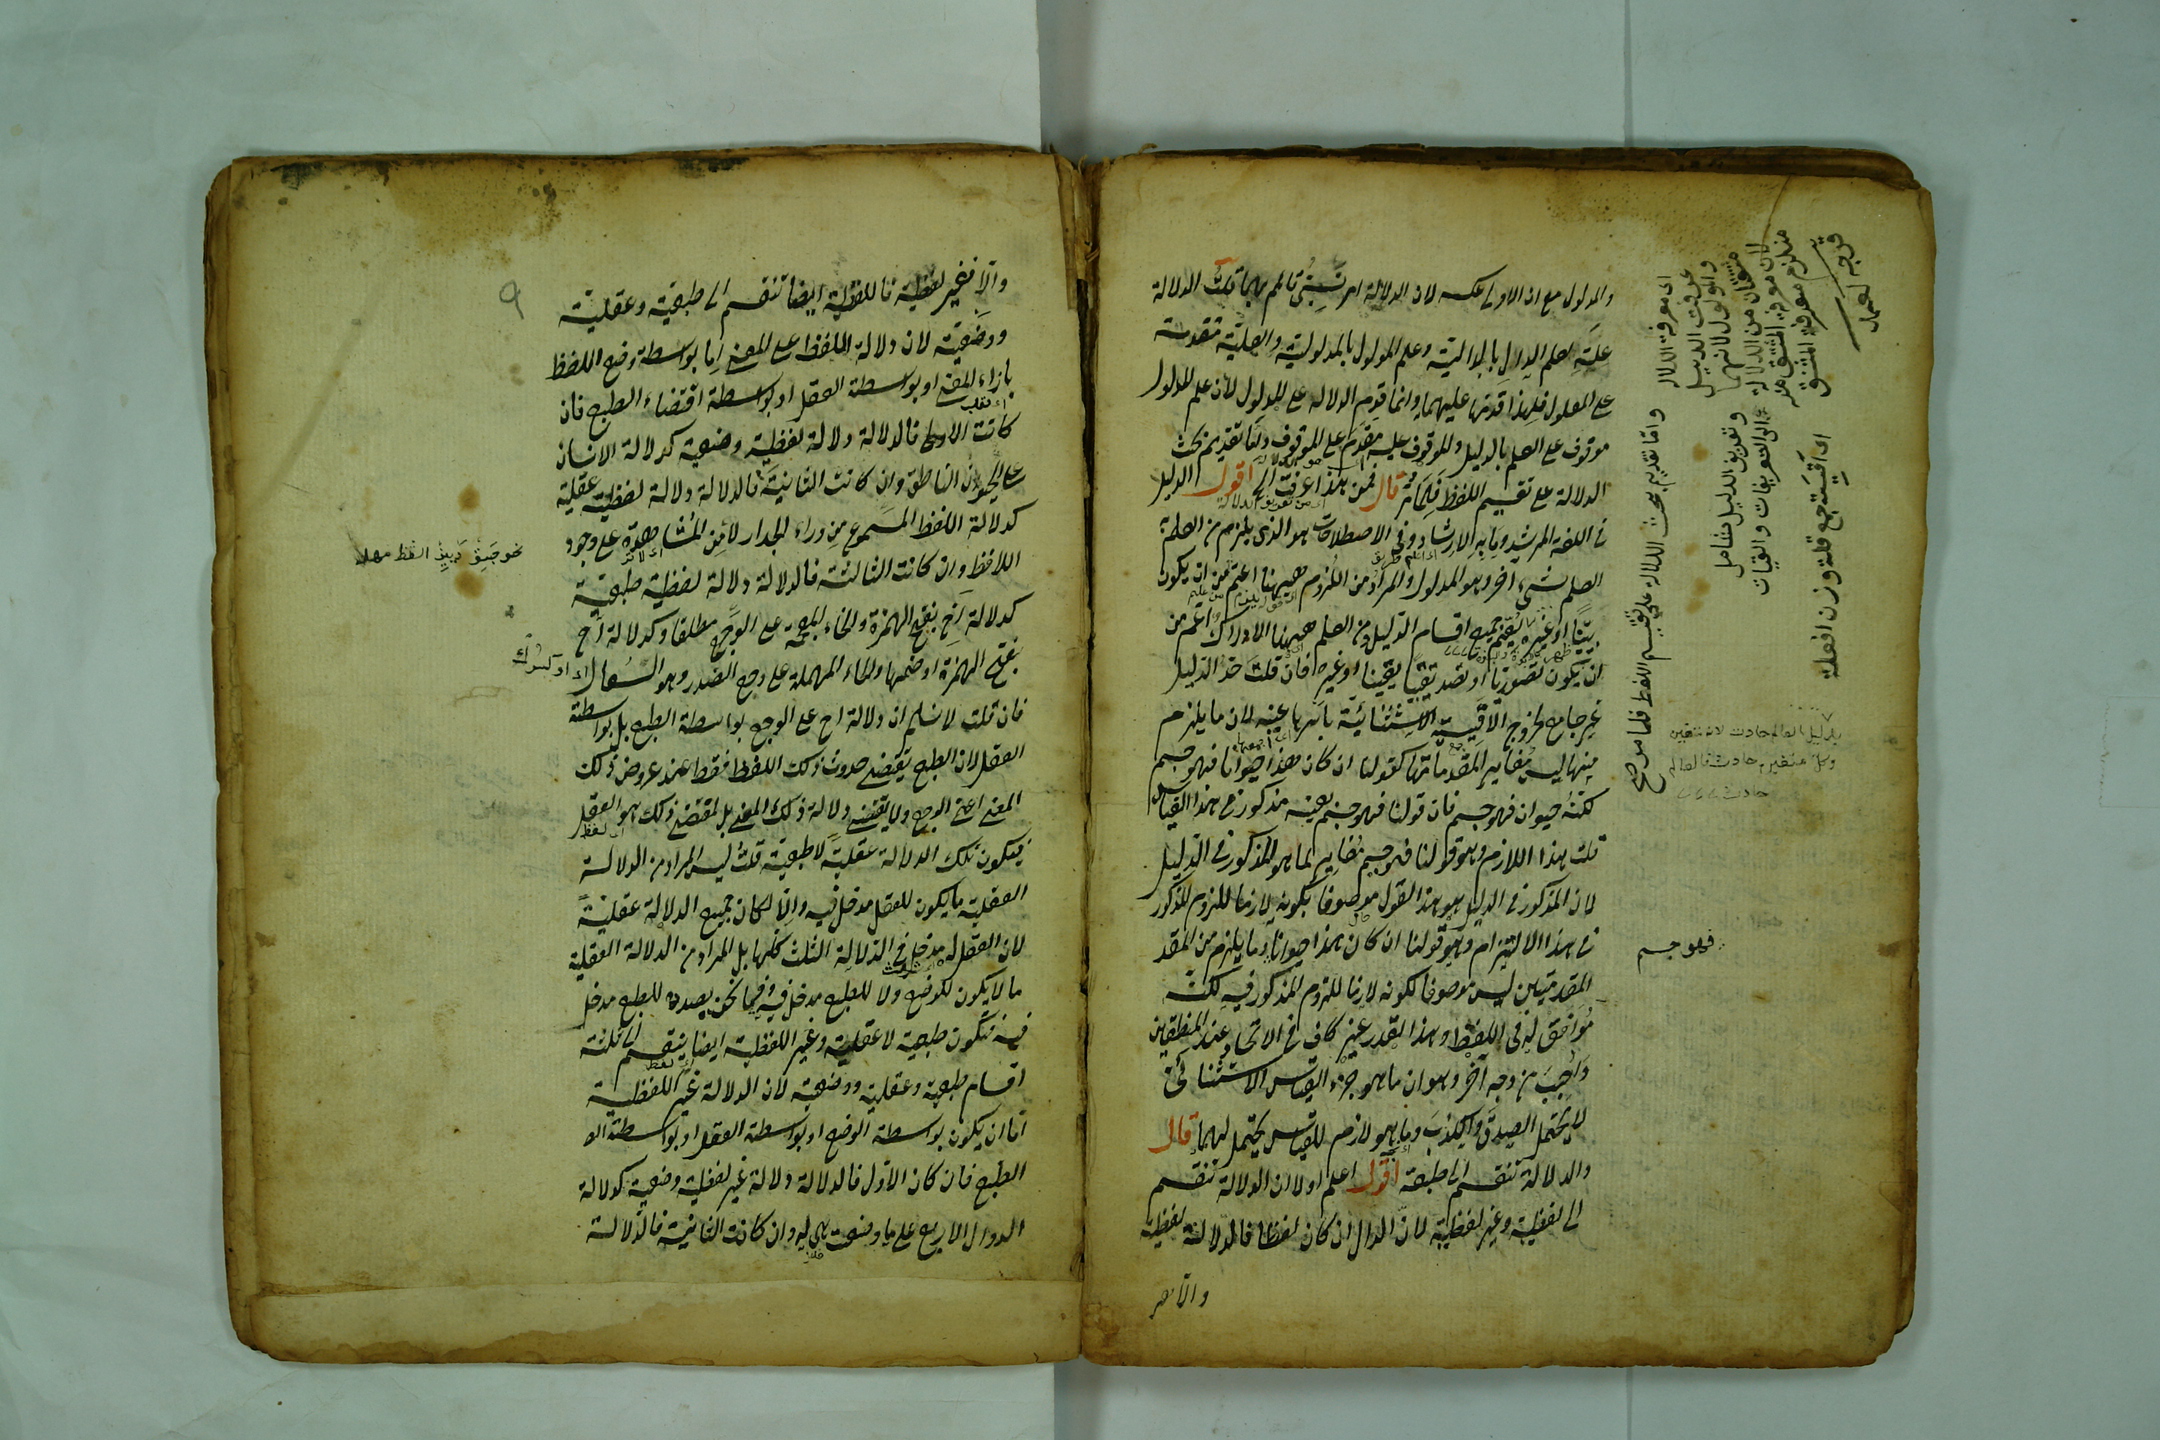 والمدلول مع ان الاولى عكسه لان الدلالة امر نسبي قائم بهما قلت الدلالة
علة لعلم الدال بالدالية وعلم المدلول بالمدلولية والعلة متقدمة
على المعلول فلهذا قدمها عليهما وانما قدم الدلالة على المدلول لان علم المدلول
موقوف على العلم بالدليل والموقوف عليه مقدم على الموقوف واما تقديم بحث
الدلالة على تقسيم اللفظ فلما مر قال فمن هذا عرفت الخ اقول الدليل
في اللغة المرشد وما به الارشاد وفي الاصطلاح هو الذي يلزم من العلم به
العلم بشيء اخر وهو المدلول والمراد من اللزوم ههنا اعم من ان يكون
بينا او غيره ليعم جميع اقسام الدليل ومن العلم ههنا الادراك اعم من
ان يكون تصوريا او تصديقيا يقينا او غيره فان قلت حد الدليل
غير جامع لخروج الاقيسة الاستثنائية باسرها عنه لان ما يلزم
منها ليس مغاير المقدماتها كقولنا ان كان هذا حيوانا فهو جسم
لكنه حيوان فهو جسم فان قولنا فهو جسم بعينه مذكور في هذا القياس
قلت هذا اللازم وهو قولنا فهو جسم مغاير لما هو المذكور في الدليل
لان المذكور في الدليل هو هذا القول موصوفا بكونه لازما للملزوم المذكور
في هذا الالتزام وهو قولنا ان كان هذا حيوانا وما يلزم من المقد
المقدمتين ليس موصوفا لكونه لازما للملزوم المذكور فيه لكنه
موافق له في اللفظ وهذا القدر غير كاف في الاتحاد عند المنطقيين
واجيب من وجه آخر وهو ان ما هو جزء القياس الاستثنائي
لا يحتمل الصدق والكذب وما هو لازم للقياس يحتمل لهما قال
والدلالة تنقسم الى طبعية اقول اعلم اولا ان الدلالة تنقسم
الى لفظية وغير لفظية لان الدال ان كان لفظا فالدلالة لفظية
والا فغير
اى معرفة الدلالة
عرفت الدليل
والمدلول لانهما
مشتقان من الدلالة
لان معرفة المشتق منه
يستلزم معرفة المشتق
واما تقديم بحث الدلالة على تقسيم اللفظ فلما مر
وتعريف الدليل شامل
اى اقيسة جمع قلة وزن افعلة
بدليل العالم حادث لانه متغير
وكل متغير حادث فالعالم
حادث
فهو جسم
٩
والا فغير لفظية فاللفظية ايضا تنقسم الى طبعية وعقلية
ووضعية لان دلالة اللفظ على المعنى اما بواسطة وضع اللفظ
بازاء المعنى او بواسطة العقل او بواسطة اقتضاء الطبع فان
كانت الاولى فالدلالة دلالة لفظية وضعية كدلالة الانسان
على الحيوان الناطق وان كانت الثانية فالدلالة دلالة لفظية عقلية
كدلالة اللفظ المسموع من وراء الجدار لا من المشاهدة على وجود
اللافظ وان كانت الثالثة فالدلالة دلالة لفظية طبعية
كدلالة اخ بفتح الهمزة والخاء المعجمة على الوجع مطلقا وكدلالة اح
بفتح الهمزة او ضمها والحاء المهملة على وجع الصدر وهو السعال
فان قلت لا نسلم ان دلالة اح على الوجع بواسطة الطبع بل بواسطة
العقل لان الطبع يقتضى حدوث ذلك اللفظ فقط عند عروض ذلك
المعنى اعنى الوجع ولا يقتضى دلالة ذلك المعنى بل المقتضى ذلك هو العقل
فيكون تلك الدلالة عقلية لا طبعية قلت ليس المراد من الدلالة
العقلية ما يكون للعقل مدخل فيه والا لكان جميع الدلالة عقلية
لان العقل له مدخل في الدلالة الثلث كلها بل المراد من الدلالة العقلية
ما لا يكون للوضع ولا للطبع مدخل فيه وفيما نحن بصدده للطبع مدخل
فيه فتكون طبعية لا عقلية وغير اللفظية ايضا ينقسم الى ثلثة
اقسام طبعية وعقلية ووضعية لان الدلالة غير اللفظية
اما ان يكون بواسطة الوضع او بواسطة العقل او بواسطة الط
الطبع فان كان الاول فالدلالة دلالة غير لفظية وضعية كدلالة
الدوال الاربع على ما وضعت هى له وان كانت الثانية فالدلالة